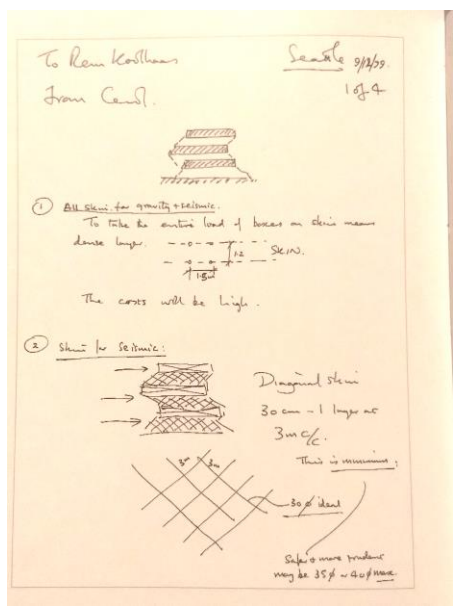 To Rem Koolhaas
Seattle 9/12/99.
From Cecil.
1 of 4
① All skin for gravity + seismic.
To take the entire load of boxes on skin means
dense layer.
1.2
SKIN.
1.5m
The costs will be high.
② Skin for seismic:
Diagonal skin
30 cm - 1 layer at
3m c/c.
This is minimum.
3m
3m
30 ø ideal
Safer & more prudent
may be 35ø ~ 40ø max